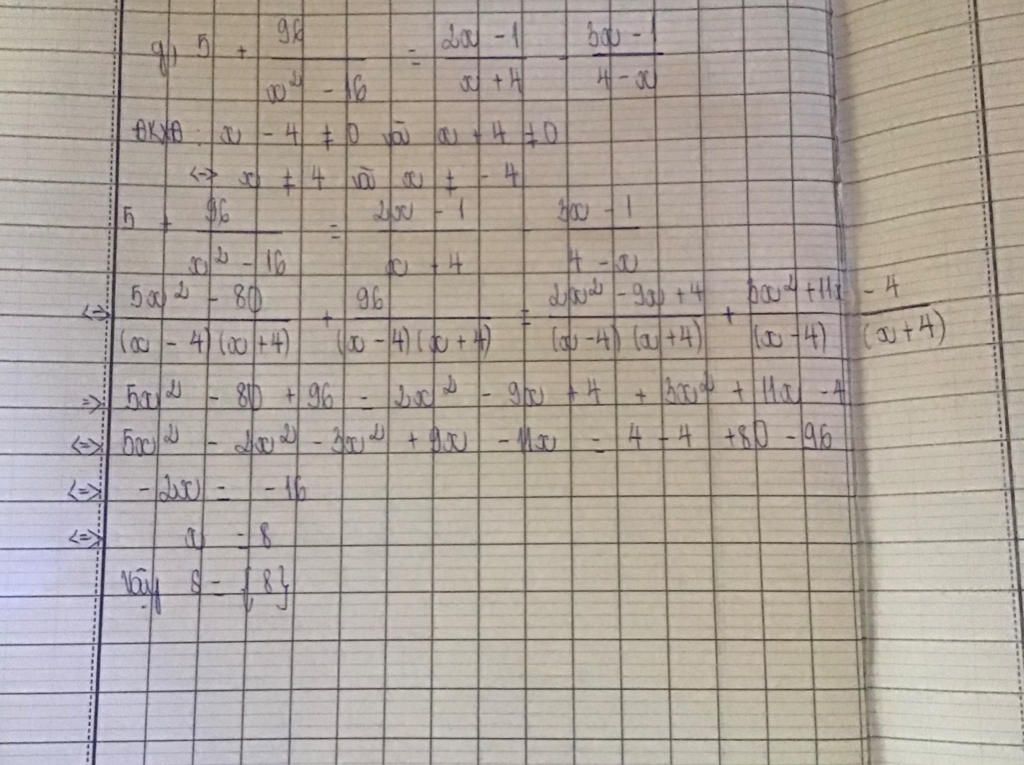 g, 5 + 96/(x² - 16) = (2x - 1)/(x + 4) - (3x - 1)/(4 - x)
ĐKXĐ: x - 4 ≠ 0 và x + 4 ≠ 0
<-> x ≠ 4 và x ≠ - 4
5 + 96/(x² - 16) = (2x - 1)/(x + 4) - (3x - 1)/(4 - x)
<=> (5x² - 80)/((x - 4)(x + 4)) + 96/((x - 4)(x + 4)) = (2x² - 9x + 4)/((x - 4)(x + 4)) + (3x² + 11x - 4)/((x - 4)(x + 4))
=> 5x² - 80 + 96 = 2x² - 9x + 4 + 3x² + 11x - 4
<=> 5x² - 2x² - 3x² + 9x - 11x = 4 - 4 + 80 - 96
<=> - 2x = - 16
<=> x = 8
Vậy S = {8}